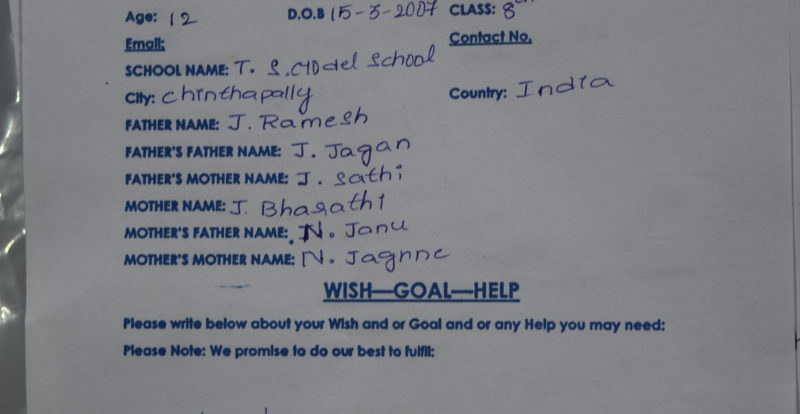 Age: 12 D.O.B 15-3-2007 CLASS: 8th
Email: Contact No.
SCHOOL NAME: T. S. Model School
City: Chinthapally Country: India
FATHER NAME: J. Ramesh
FATHER'S FATHER NAME: J. Jagan
FATHER'S MOTHER NAME: J. Sathi
MOTHER NAME: J. Bharathi
MOTHER'S FATHER NAME: N. Janu
MOTHER'S MOTHER NAME: N. Jagnne
WISH—GOAL—HELP
Please write below about your Wish and or Goal and or any Help you may need:
Please Note: We promise to do our best to fulfil: